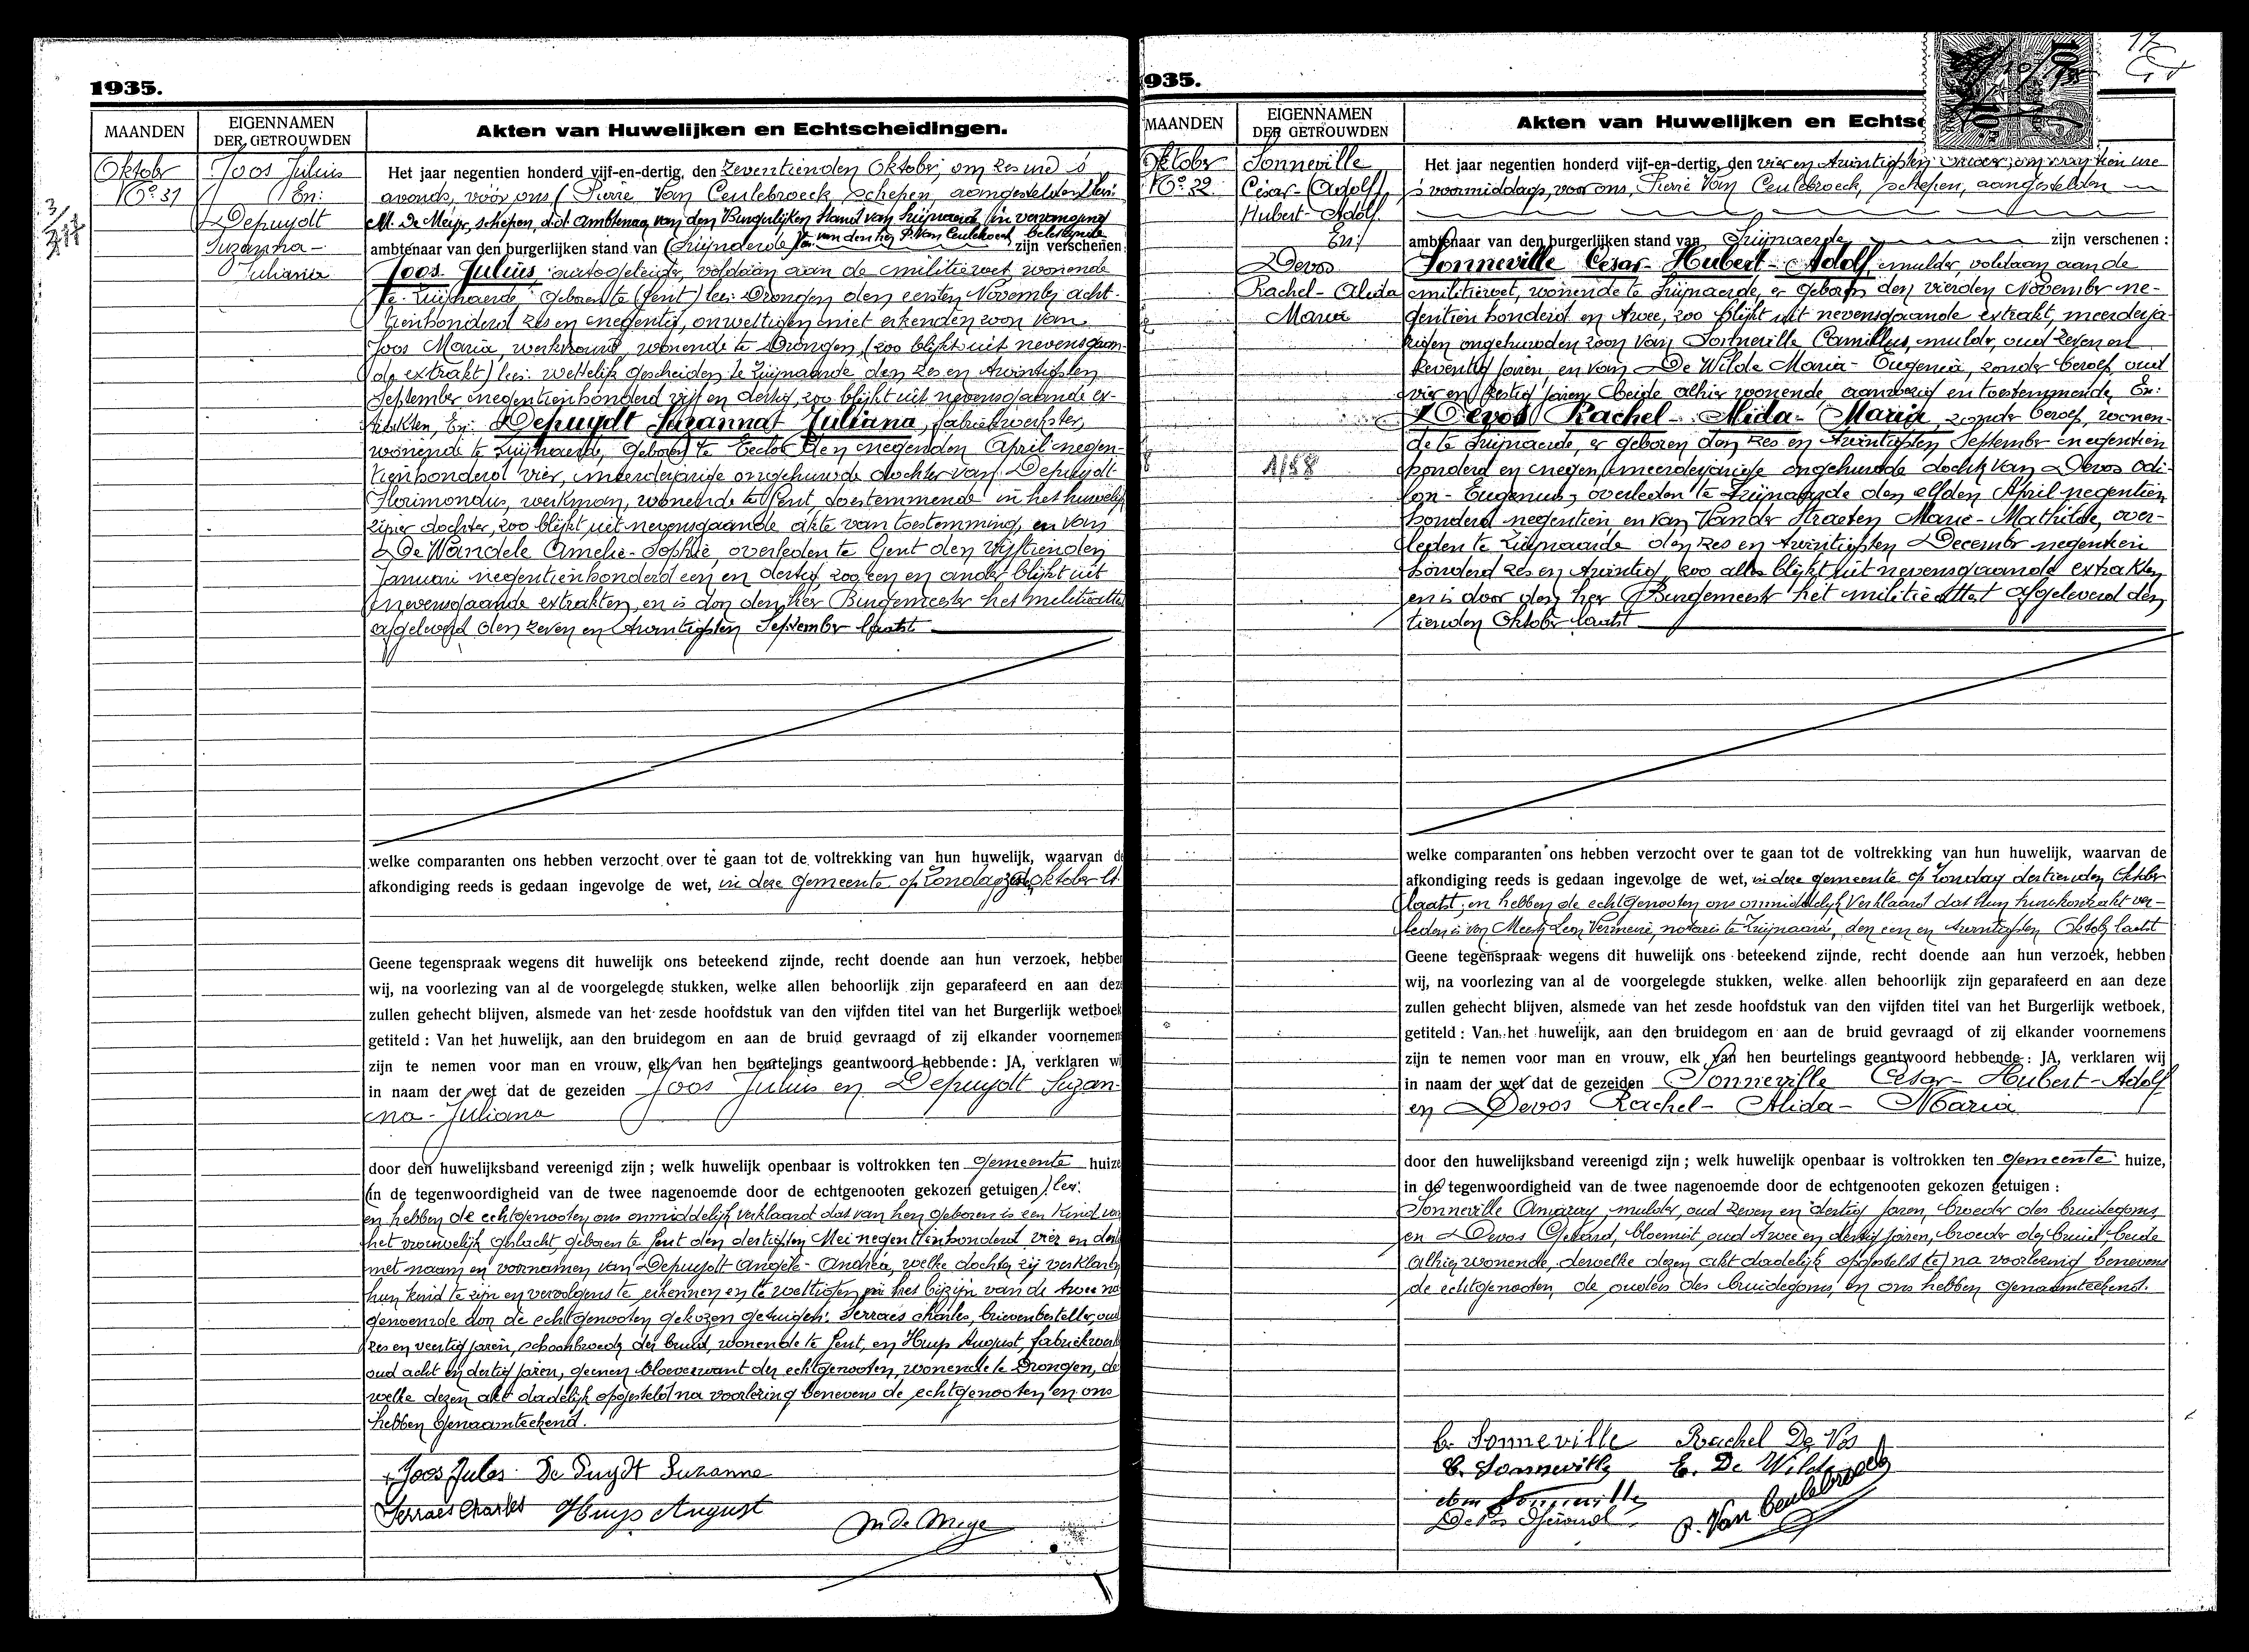 1935.
MAANDEN
EIGENNAMEN
DER GETROUWDEN
Akten van Huwelijken en Echtscheidingen.
Oktober
N° 31
Joos Julius
En:
Depuydt
Suzanna-
Juliana
Het jaar negentien honderd vijf-en-dertig, den zeventienden Oktober, om zes ure 's
avonds, vóór ons (Pierre Van Ceulebroeck, schepen, aangestelden) lees:
M. De Meyer, schepen, d.d. ambtenaar van den Burgerlijken Stand van Zwijnaarde, in vervanging
van den heer P. Van Ceulebroeck, belet zijnde
ambtenaar van den burgerlijken stand van (Zwijnaarde) zijn verschenen:
Joos Julius autogeleider, voldaan aan de militiewet, wonende
te Zwijnaarde, geboren te (Gent) lees: Drongen den eersten November acht-
tienhonderd zes en negentig, onwettigen niet erkenden zoon van
Joos Maria, werkvrouw, wonende te Drongen, (zoo blijkt uit nevensgaan-
de extrakt) lees: wettelijk gescheiden te Zwijnaarde den zes en twintigsten
September negentienhonderd vijf en dertig, zoo blijkt uit nevensgaande ex-
trakten, En: Depuydt Suzanna Juliana, fabriekwerkster,
wonende te Zwijnaarde, geboren te Eecloo den negenden April negen-
tienhonderd vier, meerderjarige ongehuwde dochter van Depuydt
Florimondus, werkman, wonende te Gent, toestemmende in het huwelijk
zijner dochter, zoo blijkt uit nevensgaande akte van toestemming, en van
De Wandele Amelie-Sophie, overleden te Gent den vijftienden
Januari negentienhonderd een en dertig, zoo een en ander blijkt uit
nevensgaande extrakten, en is door den heer Burgemeester het militieattest
afgeleverd den zeven en twintigsten September laatst
welke comparanten ons hebben verzocht over te gaan tot de voltrekking van hun huwelijk, waarvan de
afkondiging reeds is gedaan ingevolge de wet, in deze gemeente op Zondag zesden Oktober lt
Geene tegenspraak wegens dit huwelijk ons beteekend zijnde, recht doende aan hun verzoek, hebben
wij, na voorlezing van al de voorgelegde stukken, welke allen behoorlijk zijn geparafeerd en aan deze
zullen gehecht blijven, alsmede van het zesde hoofdstuk van den vijfden titel van het Burgerlijk wetboek
getiteld : Van het huwelijk, aan den bruidegom en aan de bruid gevraagd of zij elkander voornemens
zijn te nemen voor man en vrouw, elk van hen beurtelings geantwoord hebbende: JA, verklaren wij
in naam der wet dat de gezeiden Joos Julius en Depuydt Suzan-
na-Juliana
door den huwelijksband vereenigd zijn ; welk huwelijk openbaar is voltrokken ten gemeente huize
(in de tegenwoordigheid van de twee nagenoemde door de echtgenooten gekozen getuigen) lees:
en hebben de echtgenooten ons onmiddelijk verklaard dat van hen geboren is een kind van
het vrouwelijk geslacht, geboren te Gent den dertigsten Mei negentienhonderd vier en dertig
met naam en voornamen van Depuydt Angèle-Andréa, welke dochter zij verklaren
hun kind te zijn en vervolgens te erkennen en te wettigen in het bijzijn van de twee na
genoemde door de echtgenooten gekozen getuigen: Serraes Charles, brievenbesteller, oud
zes en veertig jaren, schoonbroeder der bruid, wonende te Gent, en Huys August, fabriekwerker
oud acht en dertig jaren, geenen bloedverwant der echtgenooten, wonende te Drongen, de
welke dezen akt dadelijk opgesteld na voorlezing benevens de echtgenooten en ons
hebben genaamteekend.
Joos Jules. De Puydt Suzanne
Serraes Charles Huys August
M De Meye
935.
MAANDEN
EIGENNAMEN
DER GETROUWDEN
Akten van Huwelijken en Echtsc
Oktober
N° 32
Sonneville
César-(Adolf),
Hubert-Adolf.
En:
Devos
Rachel-Alida
Maria
1/58
Het jaar negentien honderd vijf-en-dertig, den vier en twintigsten Oktober, om tien ure
's voormiddags, voor ons, Pierre Van Ceulebroeck, schepen, aangestelden
ambtenaar van den burgerlijken stand van Zwijnaerde zijn verschenen :
Sonneville Cesar-Hubert-Adolf, mulder, voldaan aan de
militiewet, wonende te Zwijnaerde, er geboren den vierden November ne-
gentien honderd en twee, zoo blijkt uit nevensgaande extrakt, meerderja-
rigen ongehuwden zoon van Sonneville Camillus, mulder, oud zeven en
zeventig jaren, en van De Wilde Maria-Eugenia, zonder beroep, oud
vier en zestig jaren, beide alhier wonende, aanwezig en toestemmende, En:
Devos Rachel-Alida-Maria, zonder beroep, wonen-
de te Zwijnaerde, er geboren den zes en twintigsten September negentien
honderd en negen, meerderjarige ongehuwde dochter van Devos Odi-
lon-Eugenius, overleden te Zwijnaarde den elfden April negentien
honderd negentien, en van Vander Straeten Marie-Mathilde, over-
leden te Zwijnaarde den zes en twintigsten December negentien
honderd zes en twintig, zoo alles blijkt uit nevensgaande extrakten
en is door den heer Burgemeester het militieattest afgeleverd den
tienden Oktober laatst
welke comparanten ons hebben verzocht over te gaan tot de voltrekking van hun huwelijk, waarvan de
afkondiging reeds is gedaan ingevolge de wet, in deze gemeente op Zondag dertienden Oktober
laatst, en hebben de echtgenooten ons onmiddelijk verklaard dat hun huurkontrakt ver-
leden is voor Meester Leon Vermeire, notaris te Zwijnaarde, den een en twintigsten Oktober laatst
Geene tegenspraak wegens dit huwelijk ons beteekend zijnde, recht doende aan hun verzoek, hebben
wij, na voorlezing van al de voorgelegde stukken, welke allen behoorlijk zijn geparafeerd en aan deze
zullen gehecht blijven, alsmede van het zesde hoofdstuk van den vijfden titel van het Burgerlijk wetboek,
getiteld : Van het huwelijk, aan den bruidegom en aan de bruid gevraagd of zij elkander voornemens
zijn te nemen voor man en vrouw, elk van hen beurtelings geantwoord hebbende : JA, verklaren wij
in naam der wet dat de gezeiden Sonneville Cesar-Hubert-Adolf
en Devos Rachel-Alida-Maria
door den huwelijksband vereenigd zijn ; welk huwelijk openbaar is voltrokken ten gemeente huize,
in de tegenwoordigheid van de twee nagenoemde door de echtgenooten gekozen getuigen :
Sonneville Amaray, mulder, oud zeven en dertig jaren, broeder des bruidegoms,
en Devos Gerard, bloemist, oud twee en dertig jaren, broeder der bruid, beide
alhier wonende, dewelke dezen akt dadelijk opgesteld (e) na voorlezing benevens
de echtgenooten, de ouders des bruidegoms, en ons hebben genaamteekend.
C. Sonneville Rachel De Vos
C. Sonneville E. De Wilde
Sonneville
De Vos Gérard P. Van Ceulebroeck